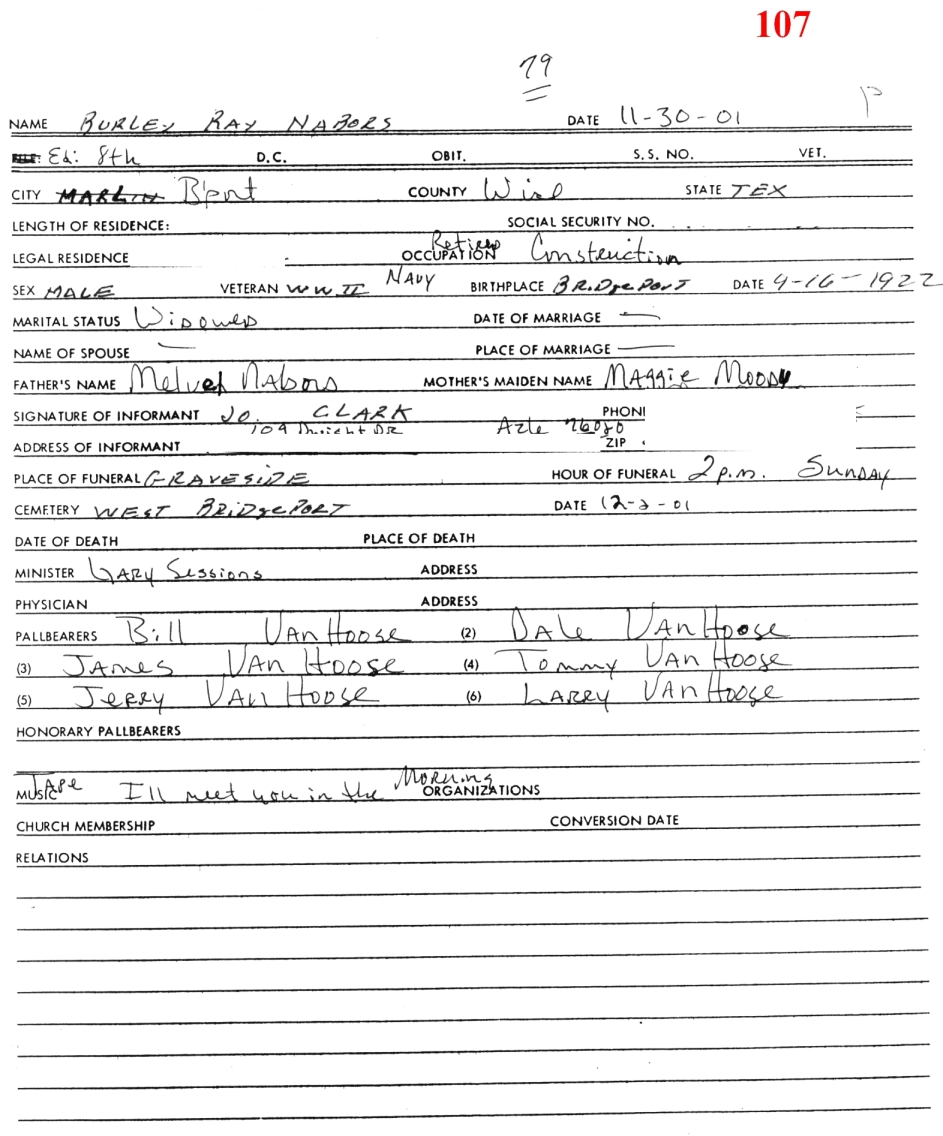 107
79
NAME BURLEY RAY NABORS DATE 11-30-01
Ed: 8th D.C. OBIT. S.S. NO. VET.
CITY MARLIN B'port COUNTY Wise STATE TEX
LENGTH OF RESIDENCE: SOCIAL SECURITY NO.
LEGAL RESIDENCE OCCUPATION Retired Construction
SEX MALE VETERAN WW II NAVY BIRTHPLACE BRIDgePORT DATE 4-16-1922
MARITAL STATUS WIDOWED DATE OF MARRIAGE —
NAME OF SPOUSE — PLACE OF MARRIAGE —
FATHER'S NAME Nabors MOTHER'S MAIDEN NAME MAggie MOODY
SIGNATURE OF INFORMANT JO. CLARK PHONE
109 Dwight DR Azle 76020
ADDRESS OF INFORMANT ZIP
PLACE OF FUNERAL GRAVESIDE HOUR OF FUNERAL 2 p.m. SUNDAY
CEMETERY WEST BRIDgePORT DATE 12-2-01
DATE OF DEATH PLACE OF DEATH
MINISTER GARY Sessions ADDRESS
PHYSICIAN ADDRESS
PALLBEARERS Bill VAN Hoose (2) DALe VAN Hoose
(3) JAMes VAN Hoose (4) Tommy VAN Hoose
(5) JeRRy VAN Hoose (6) LARRY VAN Hoose
HONORARY PALLBEARERS
MUSIC TAPe I'll meet you in the MORNING ORGANIZATIONS
CHURCH MEMBERSHIP CONVERSION DATE
RELATIONS